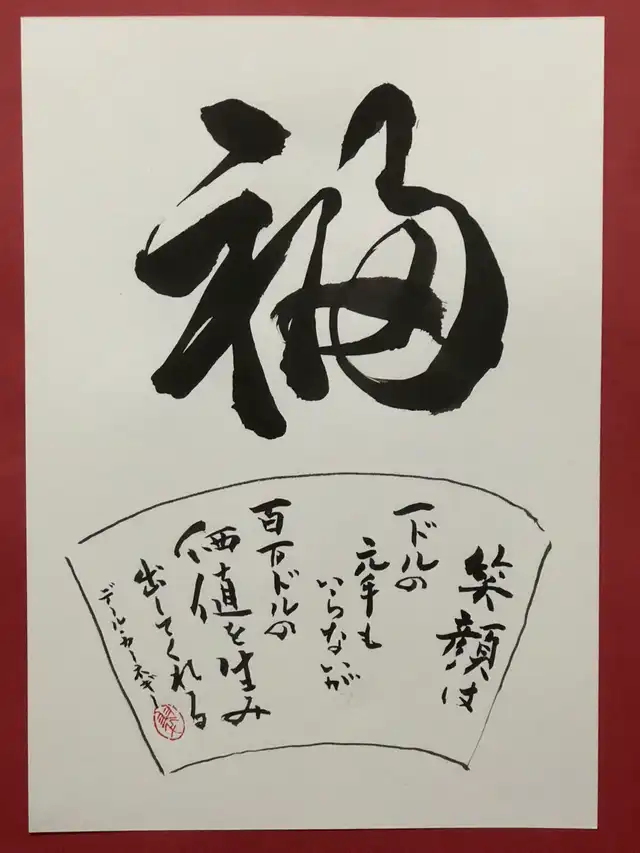 福
笑顔は
一ドルの
元手も
いらないが
百万ドルの
価値を生み
出してくれる
デール・カーネギー